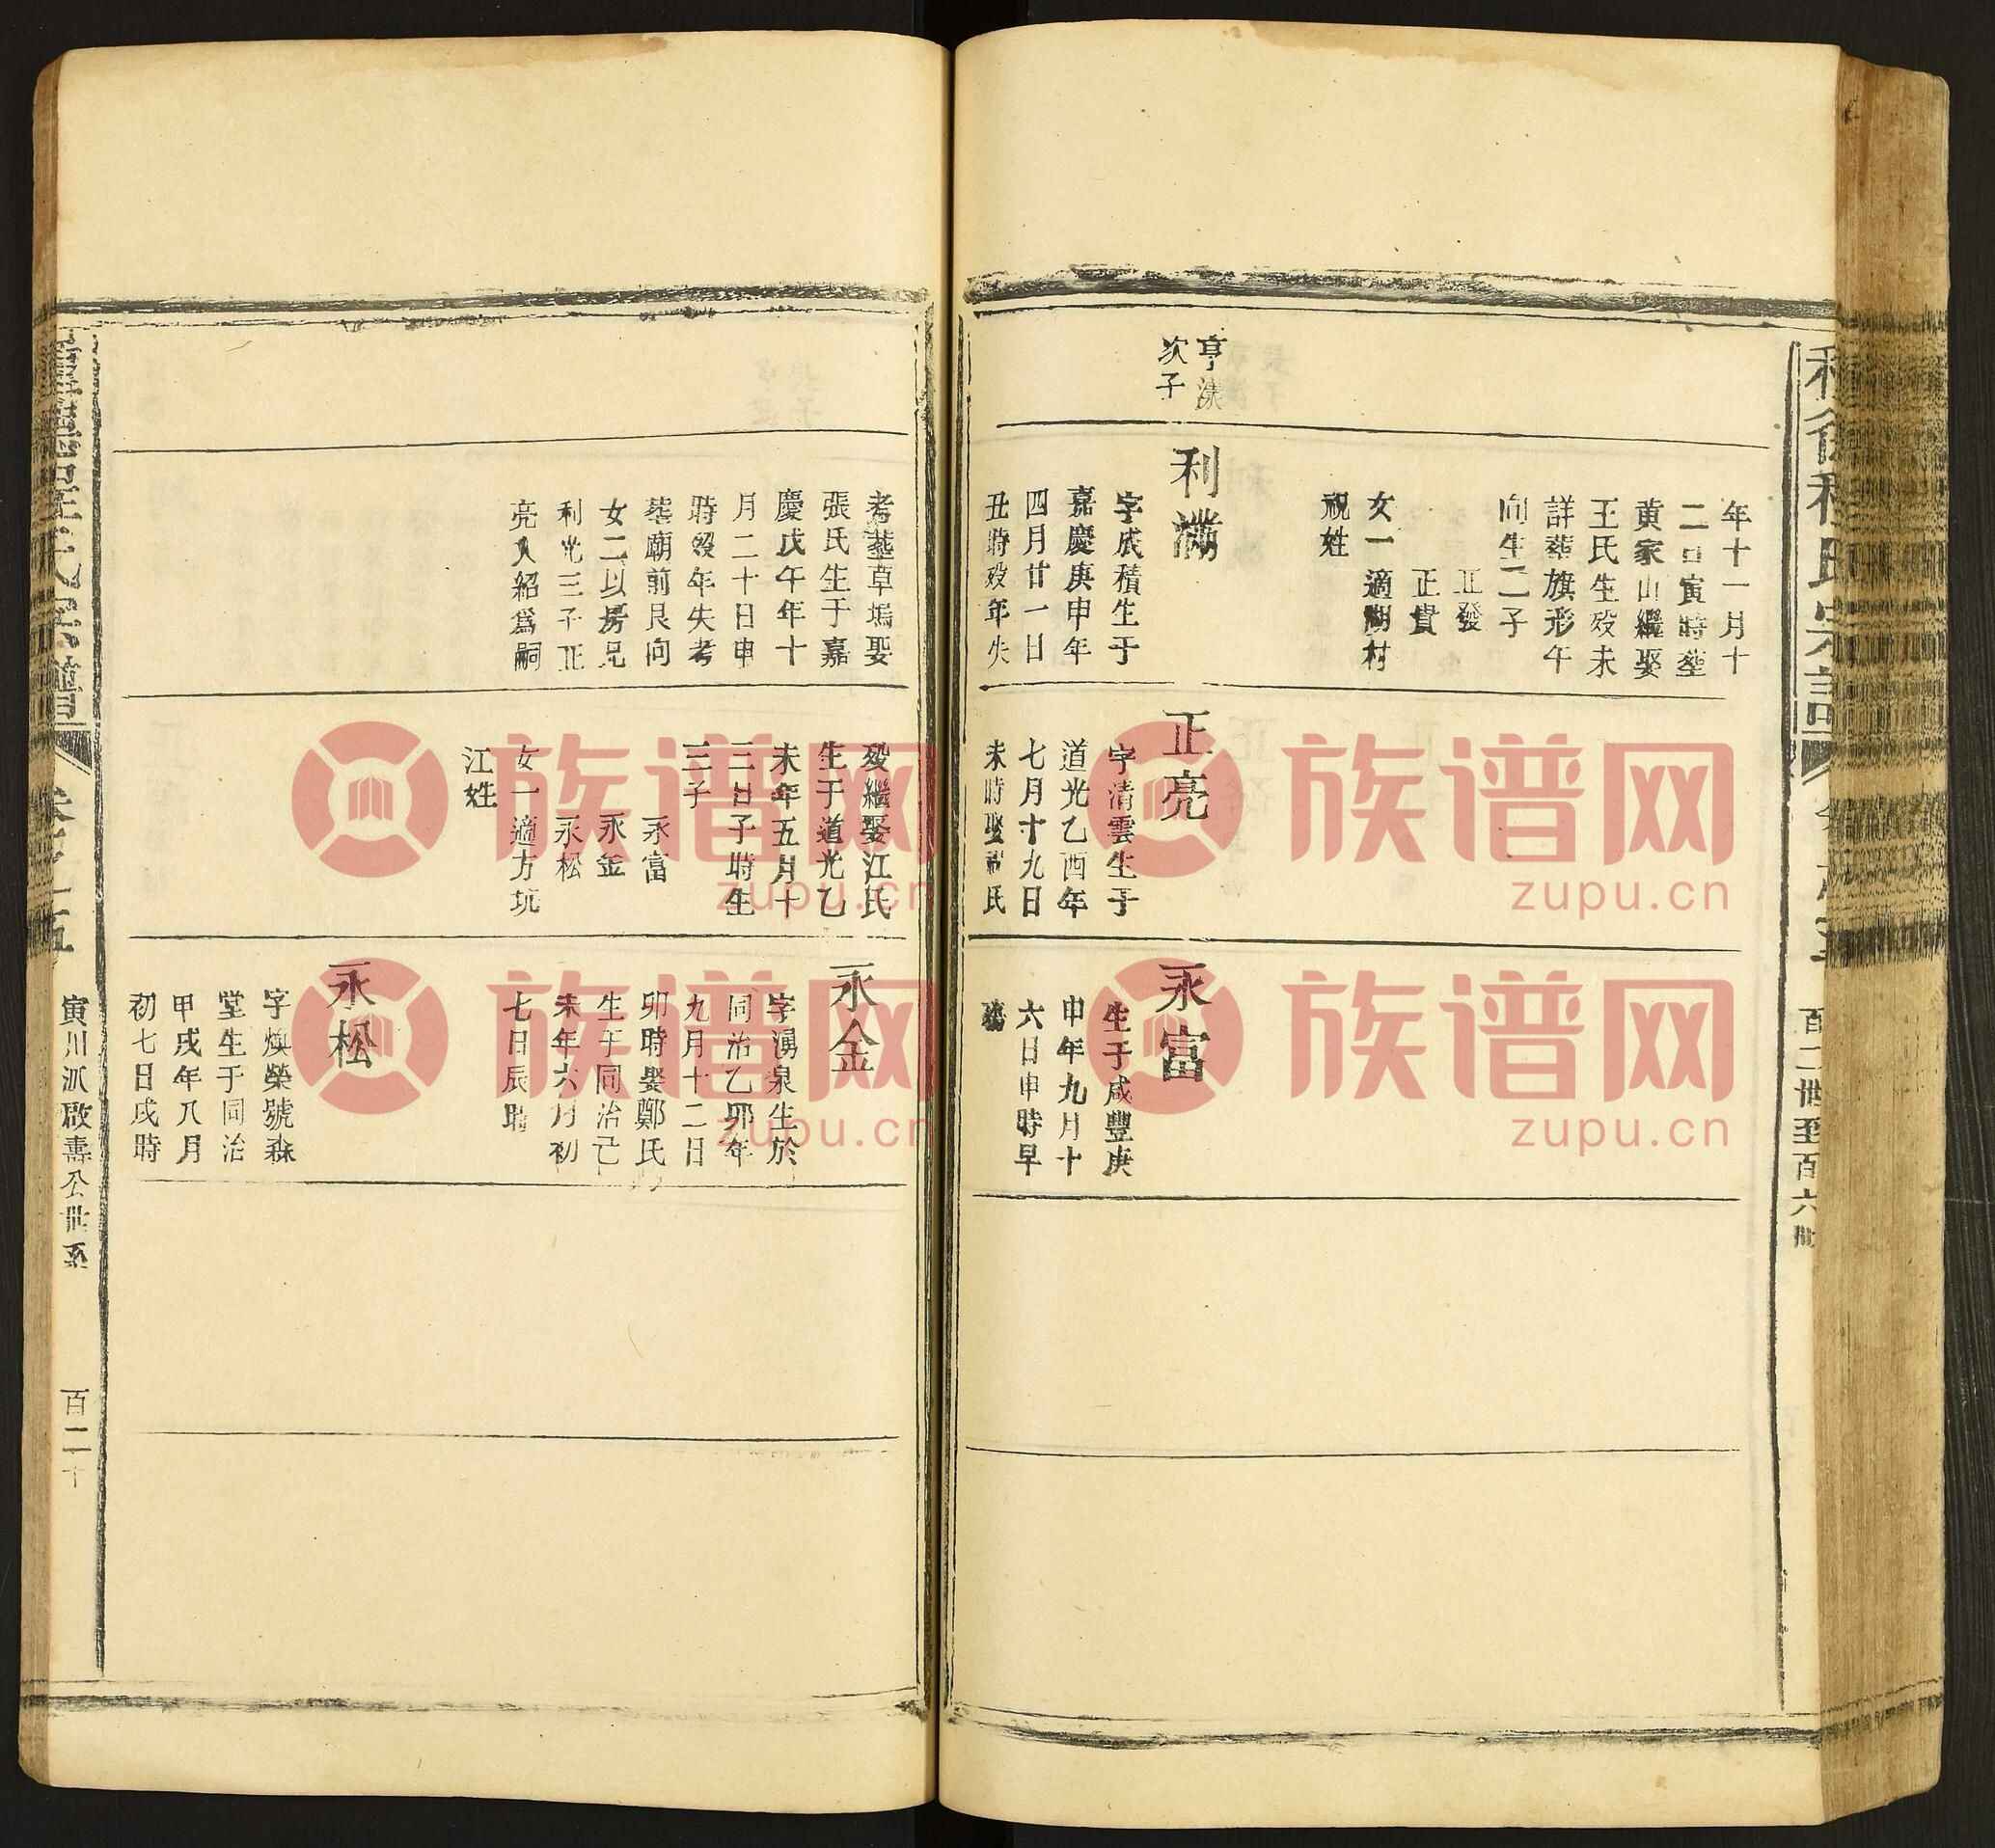 亨
次子
年十一月十
二日寅時塟
黄家山繼娶
王氏生歿未
詳塟旗形午
向生二子
正發
正貴
女一適湖村
祝姓
利滿
字成積生于
嘉慶庚申年
四月廿一日
丑時歿年失
正亮
字清雲生于
道光乙酉年
七月十九日
未時娶祝氏
永富
生于咸豐庚
申年九月十
六日申時早
殤
百二世至百六世
考塟草塢娶
張氏生于嘉
慶戊午年十
月二十日申
時歿年失考
塟廟前艮向
女二以房兄
利光三子正
亮入紹爲嗣
歿繼娶江氏
生于道光乙
未年五月十
三日子時生
三子 永富
永金
永松
女一適方坑
江姓
永金
字湧泉生於
同治乙丣年
九月十二日
卯時娶鄭氏
生于同治己
未年六月初
七日辰時
永松
字煥榮號森
堂生于同治
甲戌年八月
初七日戌時
寅川派啟壽公世系
百二十
族谱网
zupu.cn
族谱网
zupu.cn
族谱网
zupu.cn
族谱网
zupu.cn